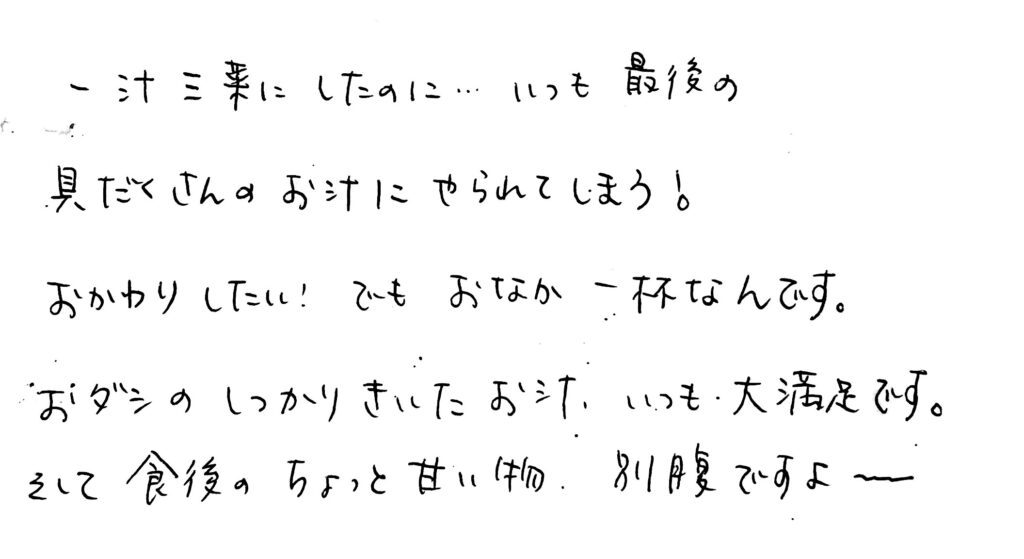 一汁三菜にしたのに… いつも 最後の
具だくさんの お汁に やられてしまう!
おかわりしたい! でも おなか 一杯なんです。
おダシの しっかりきいた お汁、いつも 大満足です。
そして 食後の ちょっと 甘い物、別腹ですよ〜